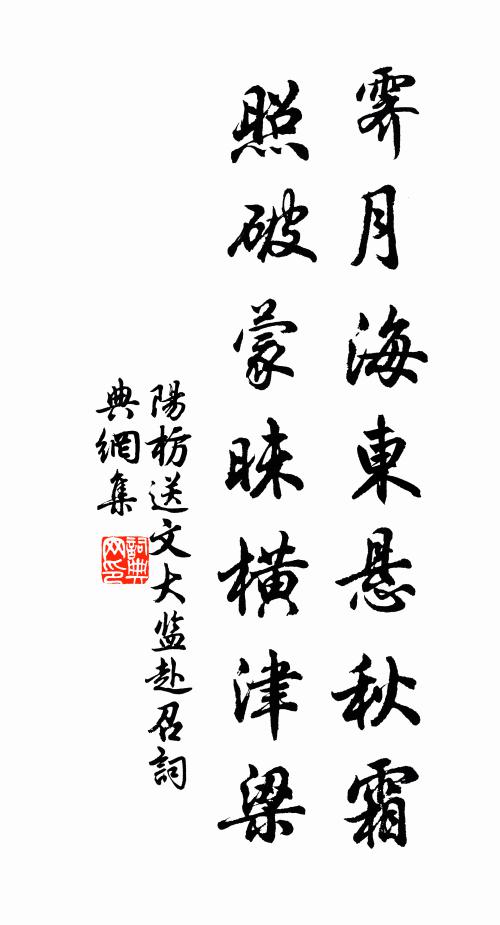 霁月海東悬秋霜
照破蒙昧横津梁
陽枋送文大监赴召詞
典網集
詞典网印